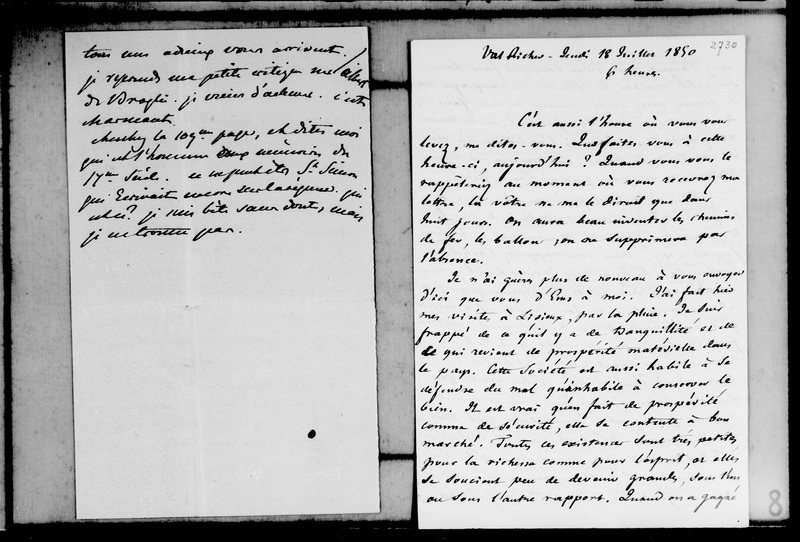 tous mes adieux vous arrivent.
je reprends ma petite critique sur Albert
de Broglie. je viens d'achever. c'est
charmant.
cherchez la 109me page, et dites moi
qui est l'homme aux mémoires du
17me Siècl. ce ne peut être St Simon
qui Ecrivait encore sous la régence. qui
est-ce? je suis bête sans doute, mais
je ne trouve pas.
2730
Val Richer - Jeudi 18 Juillet 1850
6 heures.
C'est aussi l'heure où vous vous
levez, me dites-vous. Que faites vous à cette
heure-ci, aujourd'hui ? Quand vous vous le
rappelerez au moment où vous recevrez ma
lettre, la vôtre ne me le diroit que dans
huit jours. On aura beau inventer les chemins
de fer, les ballons ; on ne supprimera pas
l'absence.
Je n'ai guères plus de nouveau à vous envoyer
d'ici que vous d'Ems à moi. J'ai fait hier
mes visites à Lisieux, par la pluie. Je suis
frappé de ce qu'il y a de tranquillité et de
ce qui revient de prospérité matérielle dans
le pays. Cette Société est aussi habile à se
défendre du mal qu'inhabile à conserver le
bien. Il est vrai qu'en fait de prospérité
comme de sécurité, elle se contente à bon
marché. Toutes ces existences sont très petites
pour la richesse comme pour l'esprit, et elles
se soucient peu de devenir grandes, sous l'un
ou sous l'autre rapport. Quand on a gagné
8